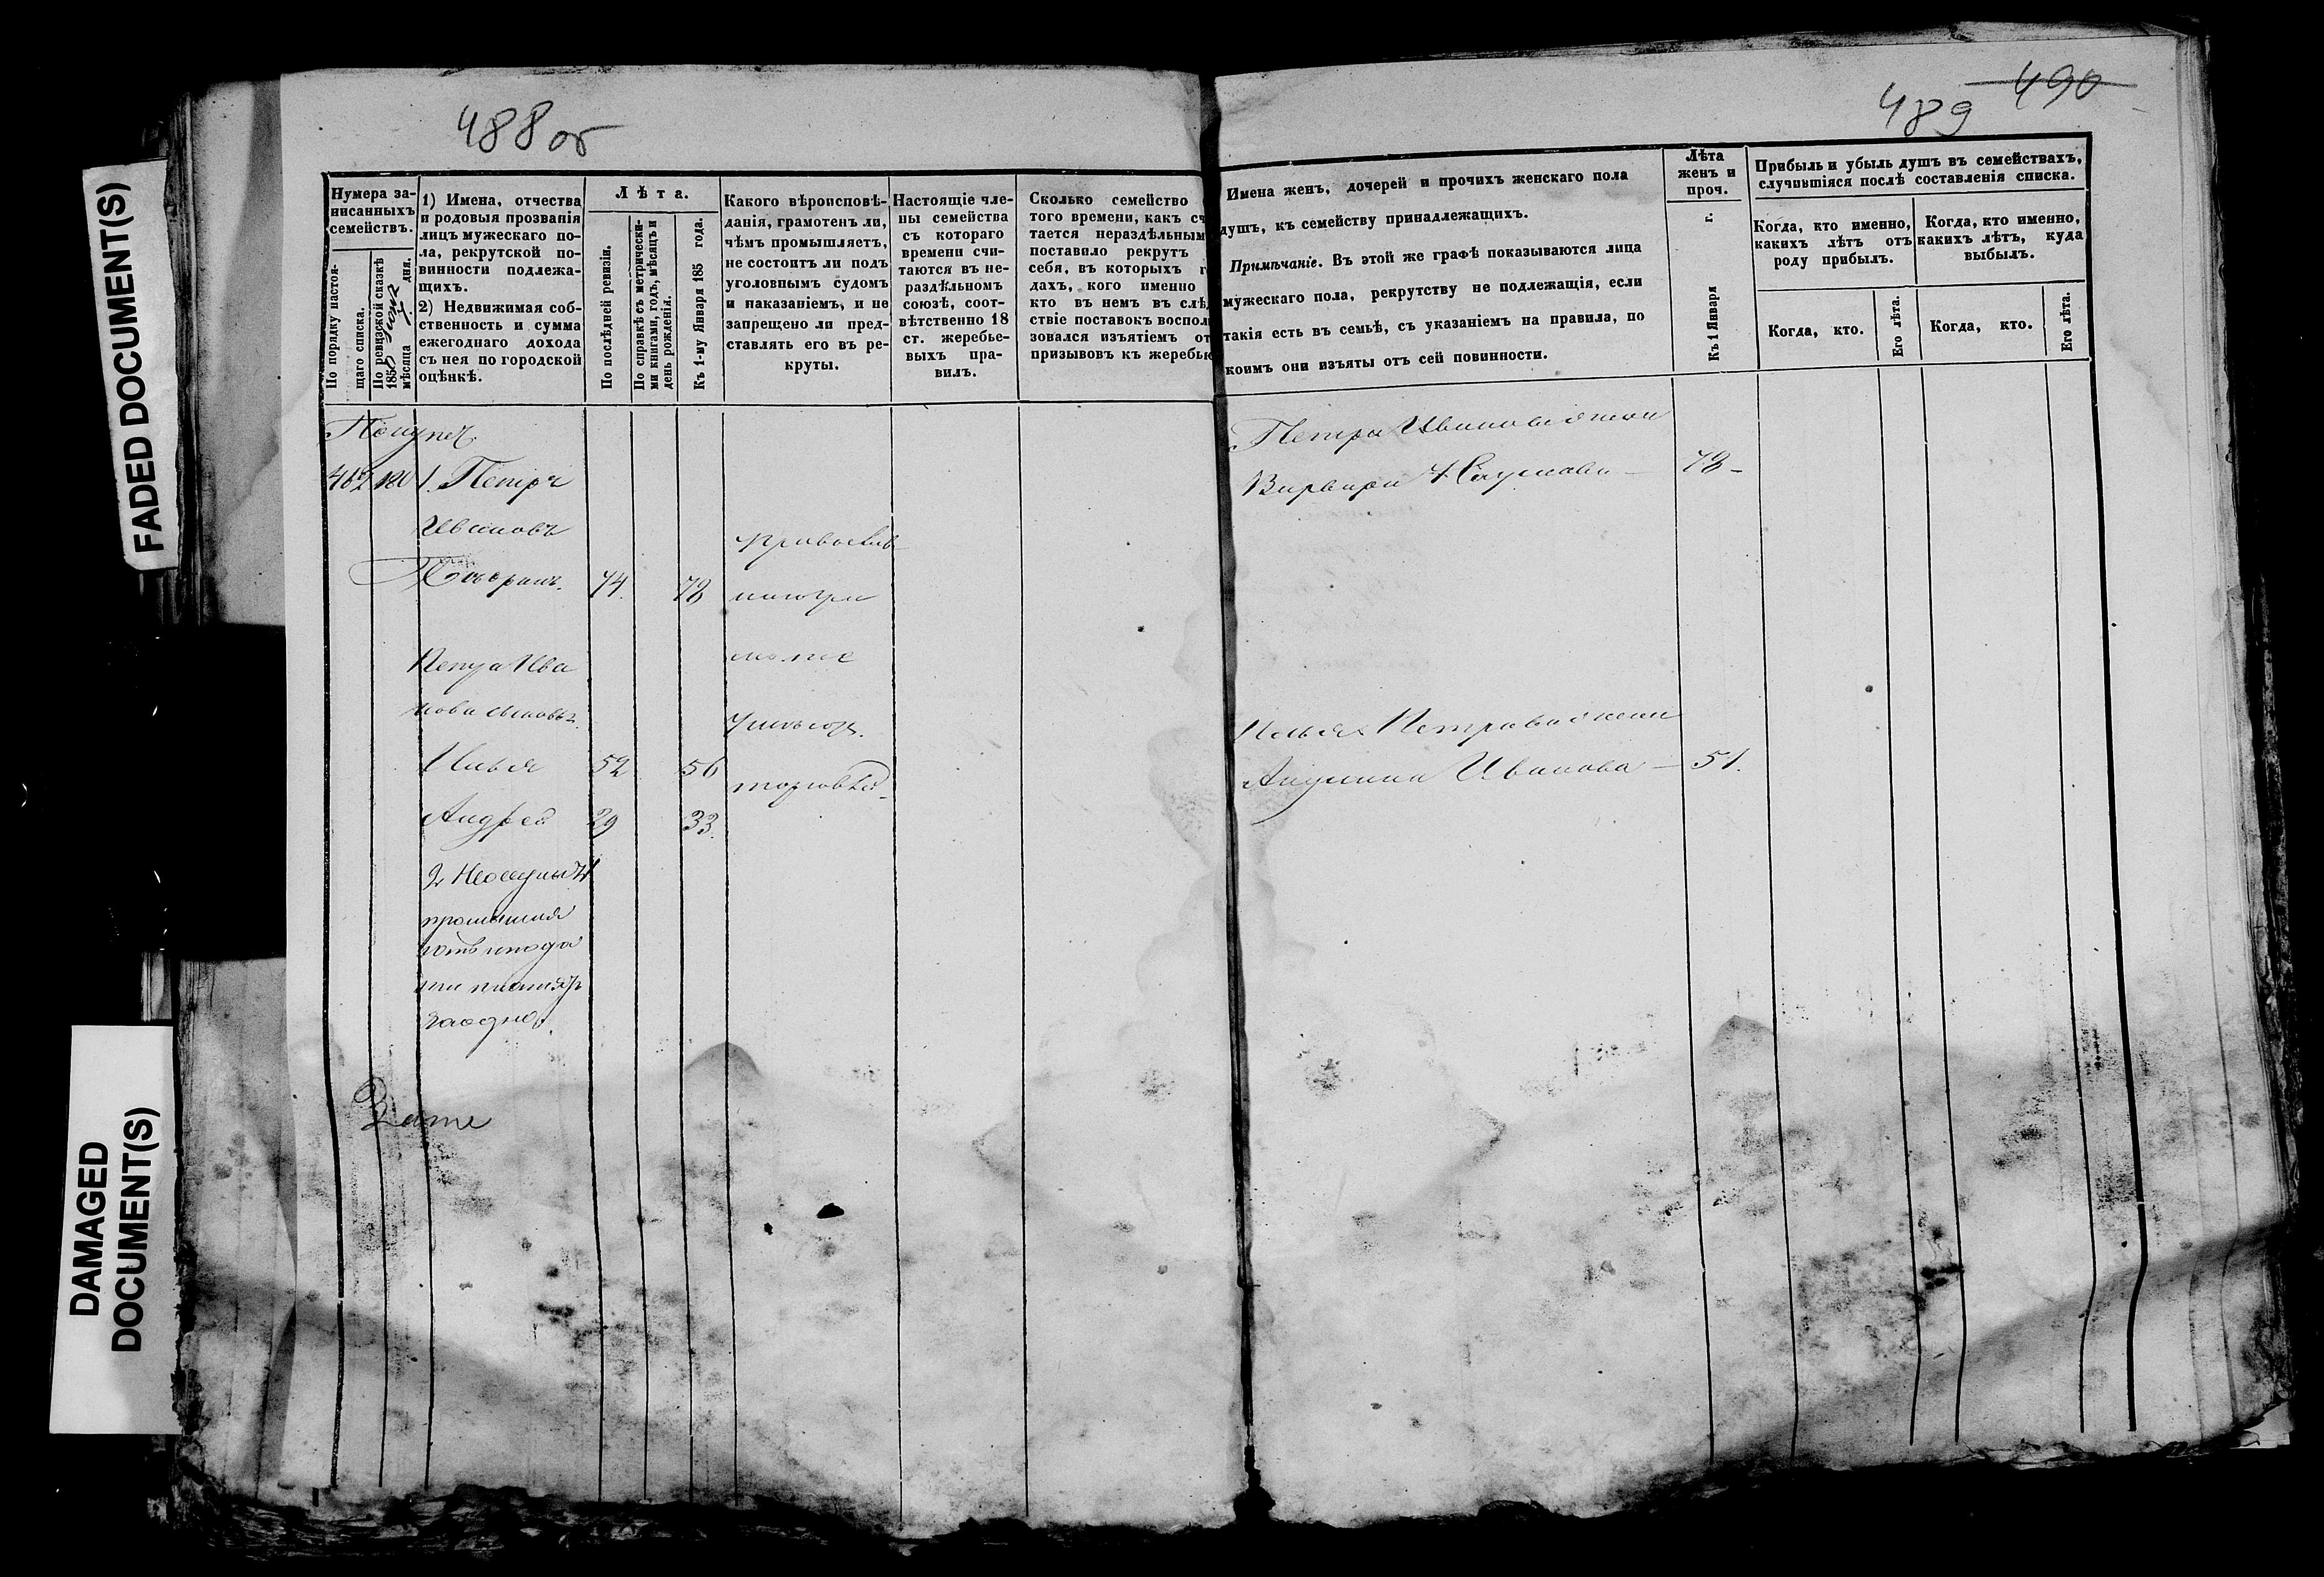 FADED DOCUMENT(S)
DAMAGED
DOCUMENT(S)
488 об
Нумера за-
писанныхъ
семействъ.
По порядку настоя-
щаго списка.
По ревизской сказкѣ
185
мѣсяца дня.
1) Имена, отчества
и родовыя прозванія
лицъ мужескаго по-
ла, рекрутской по-
винности подлежа-
щихъ.
2) Недвижимая соб-
ственность и сумма
ежегоднаго дохода
съ нея по городской
оцѣнкѣ.
Лѣта.
По послѣдней ревизіи.
По справкѣ съ метрически-
ми книгами, годъ, мѣсяцъ и
день рожденія.
Къ 1-му Января 185 года.
Какого вѣроисповѣ-
данія, грамотенъ ли,
чѣмъ промышляетъ,
не состоитъ ли подъ
уголовнымъ судомъ
и наказаніемъ, и не
запрещено ли пред-
ставлять его въ ре-
круты.
Настоящіе чле-
ны семейства
съ котораго
времени счи-
таются въ не-
раздѣльномъ
союзѣ, соот-
вѣтственно 18
ст. жеребье-
выхъ пра-
вилъ.
Сколько семейство
того времени, какъ сч
тается нераздѣльным
поставило рекрутъ
себя, въ которыхъ г
дахъ, кого именно
кто въ немъ въ слѣд
ствіе поставокъ воспол
зовался изъятіемъ от
призывовъ къ жеребью
462 180 1. Петръ
Ивановъ
74. 78
православ
Петра Ива
нова сыновья
Илья 52 56
торговлей
Андрей 29 33.
промышля
заодно.
489 490
Имена женъ, дочерей и прочихъ женскаго пола
душъ, къ семейству принадлежащихъ.
Примѣчаніе. Въ этой же графѣ показываются лица
мужескаго пола, рекрутству не подлежащія, если
такія есть въ семьѣ, съ указаніемъ на правила, по
коимъ они изъяты отъ сей повинности.
Лѣта
женъ и
проч.
Къ 1 Января г.
Прибыль и убыль душъ въ семействахъ,
случившіяся послѣ составленія списка.
Когда, кто именно,
какихъ лѣтъ отъ
роду прибылъ.
Когда, кто именно,
какихъ лѣтъ, куда
выбылъ.
Когда, кто.
Его лѣта.
Когда, кто.
Его лѣта.
Петра Иванова жена
Варвара Наумова — 78 -
Ильи Петрова жена
Акулина Иванова — 51.